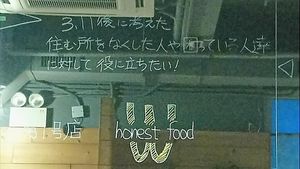 3.11後に考えた
住む所をなくした人や困っている人達
に対して役に立ちたい!
号店 honest food
W